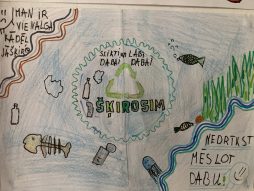 MAN IR
VIENALGA
KĀDĒĻ
JĀŠĶIRO
SLIKTI LABI
DABAI DABAI
ŠĶIROSIM
NEDRĪKST
MĒSLOT
DABU!